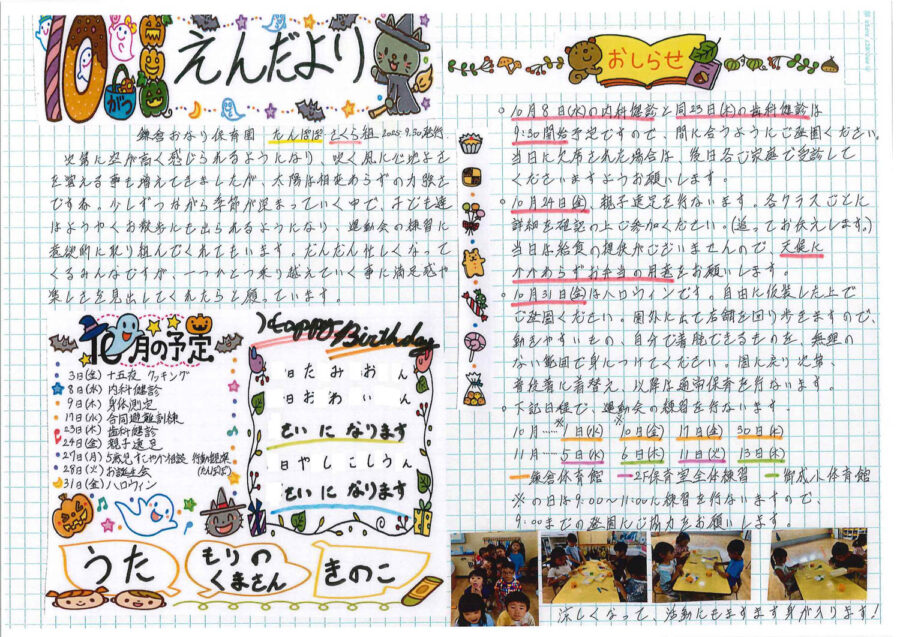 10がつ
えんだより
鎌倉おなり保育園 たんぽぽ さくら組 2025.9.30発行
次第に空が高く感じられるようになり、吹く風に心地よさ
を覚える事も増えてきましたが、太陽は相変わらずの力強さ
ですね。少しずつながら季節が深まっていく中で、子ども達
はようやくお散歩にも出られるようになり、運動会の練習に
意欲的に取り組んでくれてもいます。だんだん忙しくなって
くるみんなですが、一つひとつ乗り越えていく事に満足感や
楽しさを見出してくれたらと願っています。
10月の予定
3日(金) 十五夜 クッキング
8日(水) 内科健診
9日(木) 身体測定
17日(水) 合同避難訓練
23日(木) 歯科健診
24日(金) 親子遠足
27日(月) 5歳児すこやか相談 行動観察
28日(火) お誕生会 (たんぽぽ)
31日(金) ハロウィン
Happy Birthday
日 た み お ん
日 お わ い ん
さいに なります
日 や し こ し う ん
さいに なります
うた
もりの
くまさん
きのこ
おしらせ
○10月8日(水)の内科健診と同23日(木)の歯科健診は
9:30開始予定ですので、間に合うようにご登園ください。
当日に欠席された場合は、後日各ご家庭で受診して
くださいますようお願いします。
○10月24日(金)、親子遠足を行ないます。各クラスごとに
詳細を確認の上ご参加ください。(追ってお伝えします。)
当日は給食の提供がございませんので、天候に
かかわらずお弁当の用意をお願いします。
○10月31日(金)はハロウィンです。自由に仮装した上で
ご登園ください。園外に出て店舗を回り歩きますので、
動きやすいもの、自分で着脱できるものを、無理の
ない範囲で身につけてください。園に戻り次第、
普段着に着替え、以降は通常保育を行ないます。
○下記日程で、運動会の練習を行ないます。
10月……※1日(水) ※10日(金) 17日(金) 30日(木)
11月……5日(水) 6日(木) 11日(火) 13日(木)
鎌倉体育館 2F保育室全体練習 御成小体育館
※の日は9:00〜11:00に練習を行ないますので、
9:00までの登園にご協力をお願いします。
涼しくなって、活動にもますます身が入ります!